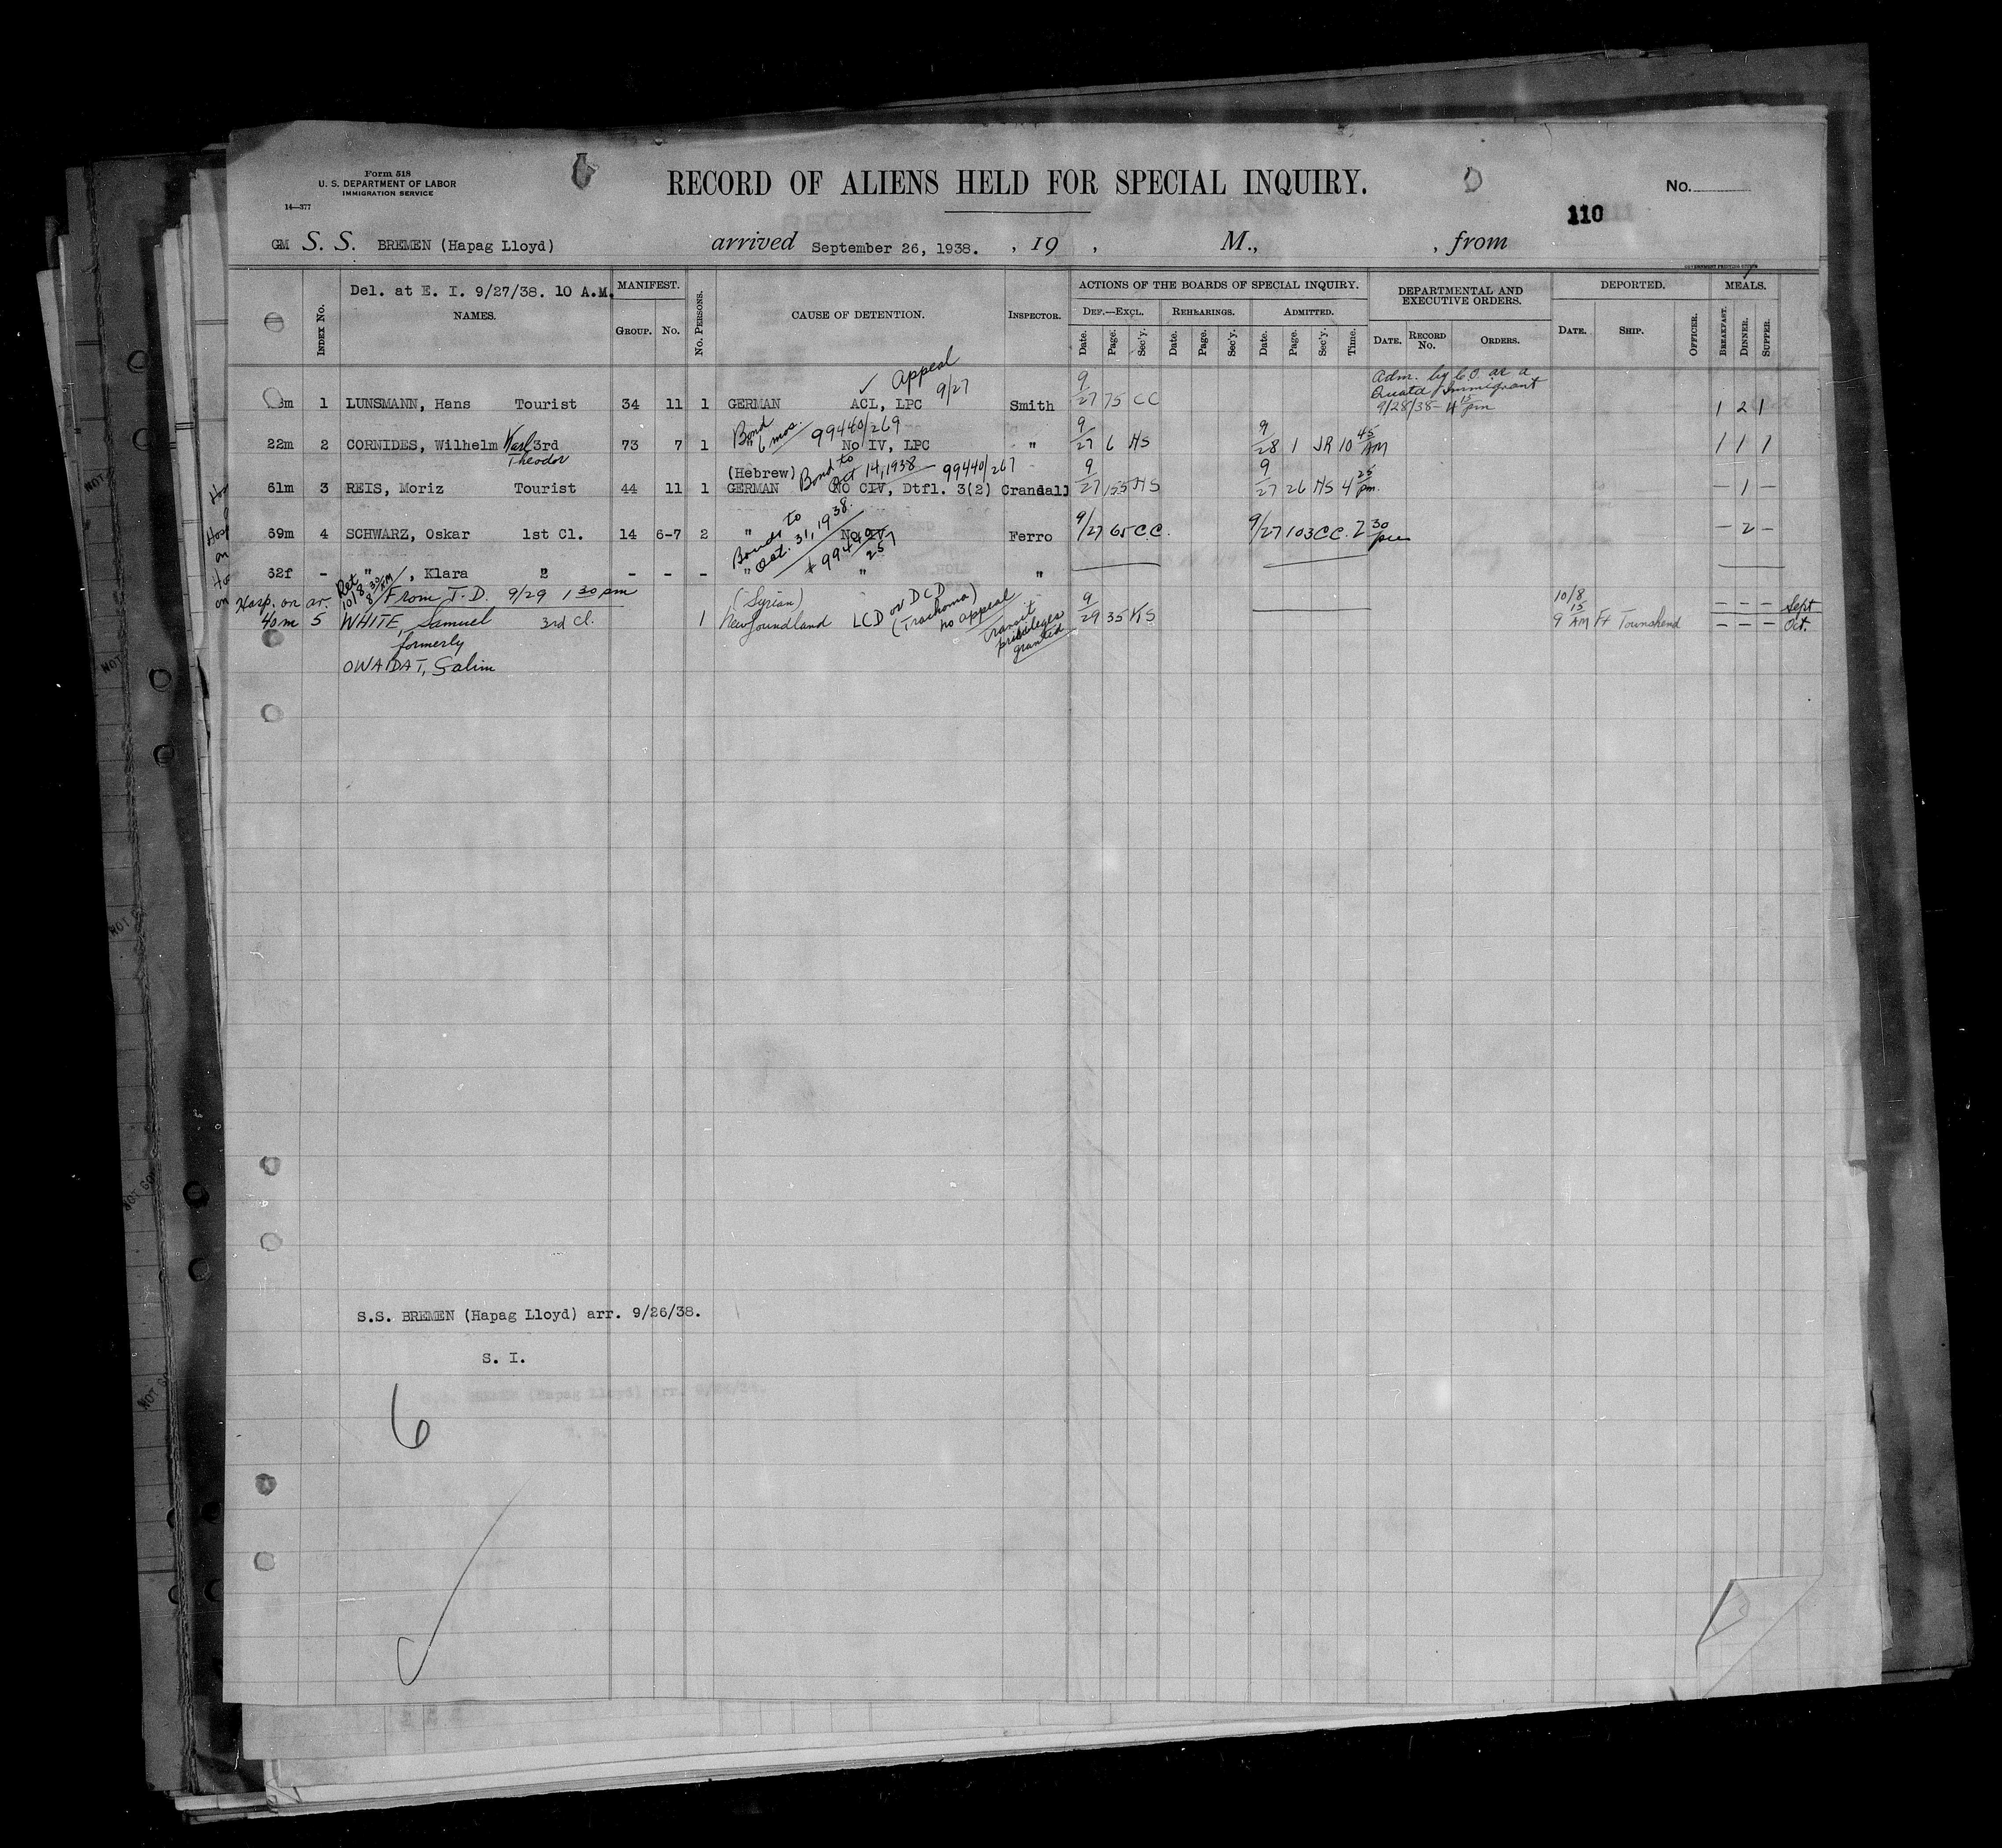 Form 518
U. S. DEPARTMENT OF LABOR
IMMIGRATION SERVICE
14—377
RECORD OF ALIENS HELD FOR SPECIAL INQUIRY.
No.
110
GM S. S. BREMEN (Hapag Lloyd) arrived September 26, 1938. , 19 , M., , from
Del. at E. I. 9/27/38. 10 A.M. MANIFEST. ACTIONS OF THE BOARDS OF SPECIAL INQUIRY. DEPARTMENTAL AND EXECUTIVE ORDERS. DEPORTED. MEALS.
Index No. NAMES. Group. No. No. Persons. CAUSE OF DETENTION. Inspector. Def.—Excl. Rehearings. Admitted.
Date. Page. Sec'y. Date. Page. Sec'y. Date. Page. Sec'y. Time. Date. Record No. Orders. Date. Ship. Officer. Breakfast. Dinner. Supper.
✓ Appeal 9/27
Adm. by C.O. as a
Quota Immigrant
9/28/38 - 4 15 pm
1 LUNSMANN, Hans Tourist 34 11 1 GERMAN ACL, LPC Smith 9/27 75 CC 1 2 1
Bond 6 mos. 99440/269
22m 2 CORNIDES, Wilhelm Karl 3rd 73 7 1 " No IV, LPC " 9/27 6 HS 9/28 1 JR 10 45 AM 1 1 1
Theodor
(Hebrew) Bond to Oct 14, 1938 99440/267
61m 3 REIS, Moriz Tourist 44 11 1 GERMAN No CIV, Dtfl. 3(2) Crandall 9/27 155 HS 9/27 26 HS 4 25 pm. — 1 —
Bonds to Oct. 31, 1938.
69m 4 SCHWARZ, Oskar 1st Cl. 14 6-7 2 " No IV Ferro 9/27 65 C.C. 9/27 103 CC. 2 30 pm — 2 —
99440/257
62f - " , Klara " - - - " " "
Ret 10/8 8 30 AM
Hosp. on ar. From T.D. 9/29 1 30 pm
(Syrian)
40m 5 WHITE, Samuel 3rd Cl. 1 Newfoundland LCD or DCD (Trachoma) no appeal 9/29 35 KS 10/8 9 15 AM Ft Townshend — — — Sept
— — — Oct.
Transit privileges granted
formerly
OWAIDAT, Salim
S.S. BREMEN (Hapag Lloyd) arr. 9/26/38.
S. I.
6